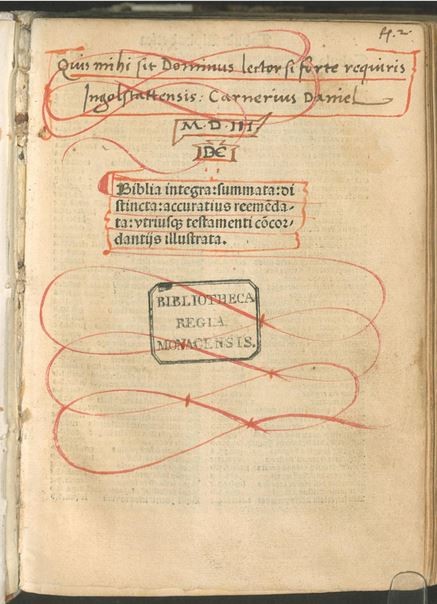 Quis mihi sit Dominus lector si forte requiris
Ingolstattensis: Carnerius Daniel
M·D·III
Biblia integra:summata:di
stincta:accuratius reemẽda-
ta:vtriusqꝫ testamenti cõcor-
dantijs illustrata.
BIBLIOTHECA
REGIA
MONACENSIS.